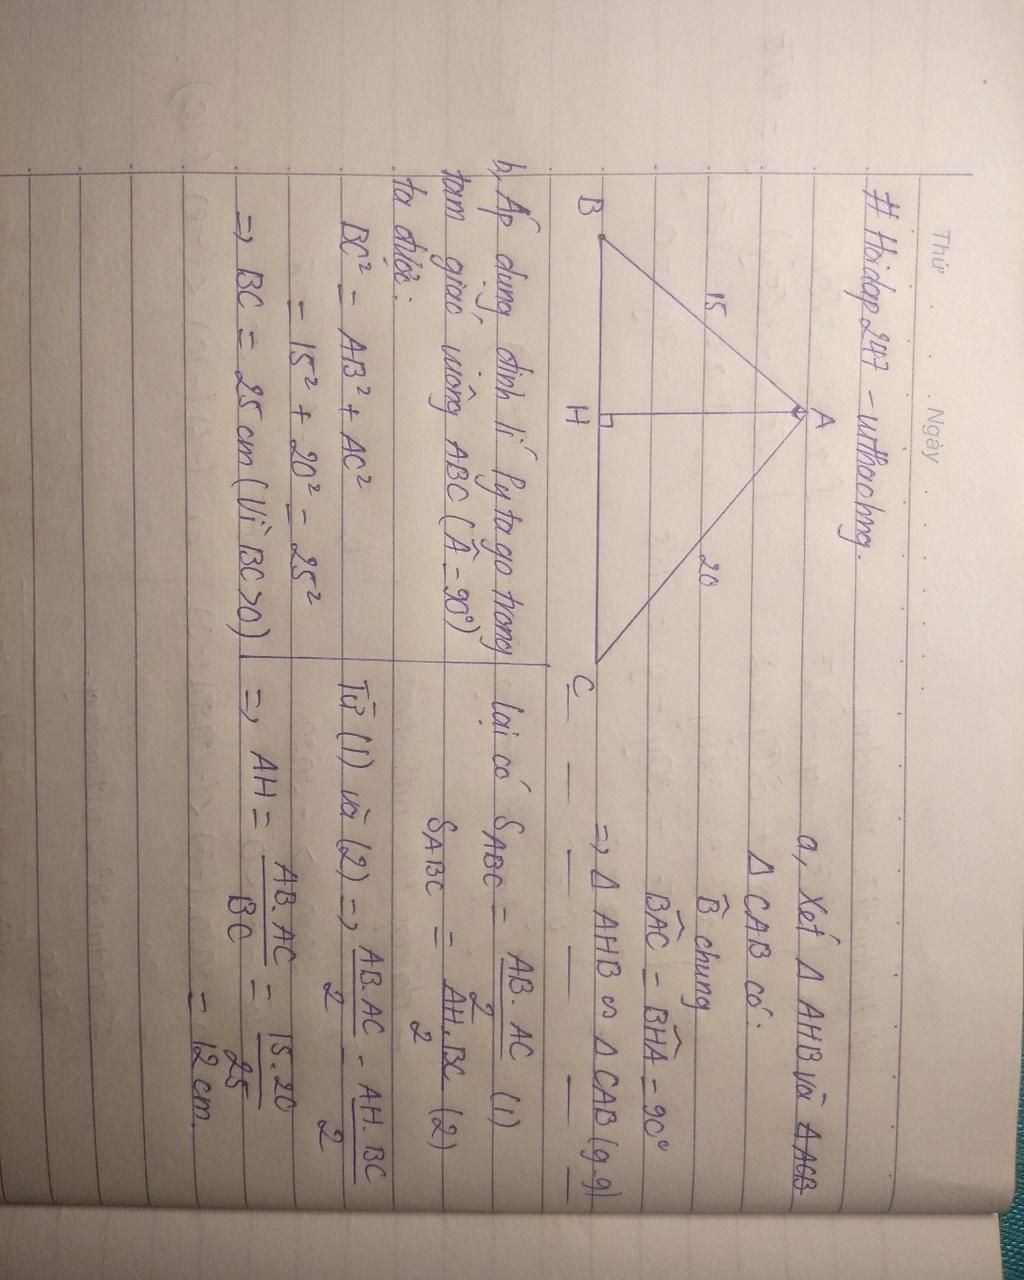 Thứ Ngày
# Hoidap247 -
A
15
20
B
H
C
a, Xét Δ AHB và Δ ACB
Δ CAB có:
B̂ chung
BÂC = BĤA = 90°
=> Δ AHB ∽ Δ CAB (g-g)
b, Áp dụng định lí Pytago trong
tam giác vuông ABC (Â = 90°)
ta được:
BC² = AB² + AC²
= 15² + 20² = 25²
=> BC = 25 cm (Vì BC>0)
lại có S_ABC = AB.AC/2 (1)
S_ABC = AH.BC/2 (2)
Từ (1) và (2) => AB.AC/2 = AH.BC/2
=> AH = AB.AC/BC = 15.20/25
= 12 cm.